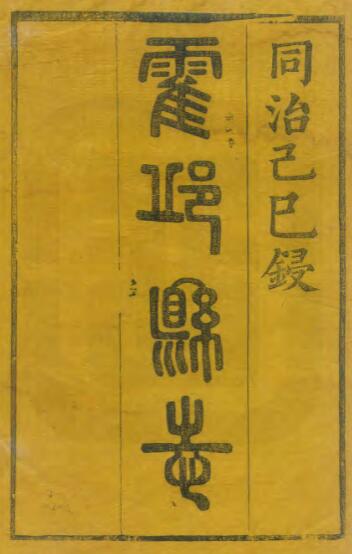 同治己巳鋟
霍邱縣志